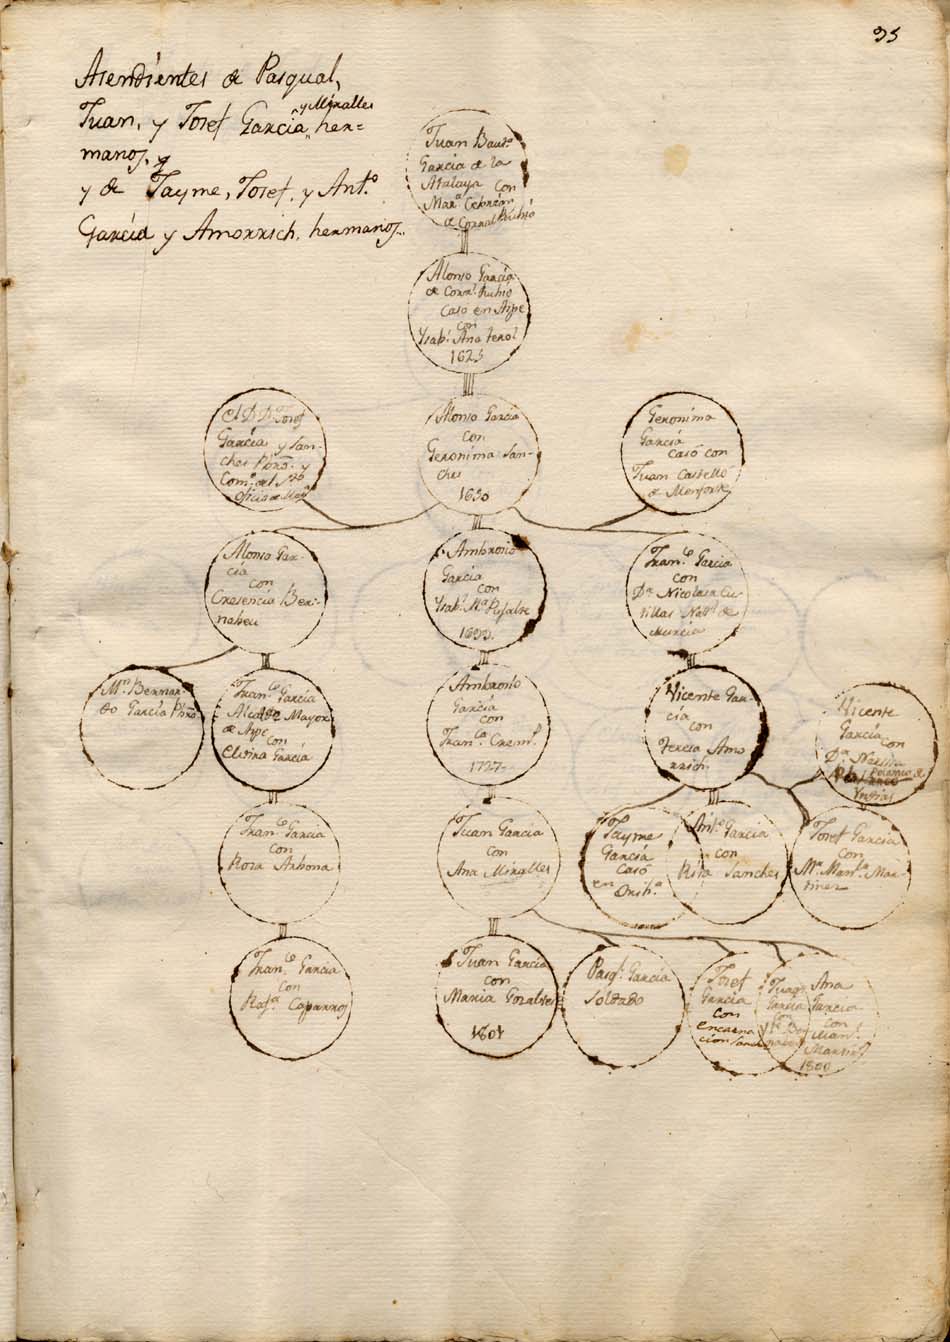 35
Asendientes de Pasqual,
Juan, y Josef Garcia y Miralles, her=
manos, y
y de Jayme, Josef, y Ant.º
Garcia y Amorrich, hermanos.
Juan Baut.ª
Garcia de la
Atalaya con
Mar.ª Cebrian
de Corral Rubio
Alonso Garcia
de Corr.l Rubio
Caso en Aspe
con
Ysab.l Ana
1625
El D.r D.n Josef
Garcia y San-
ches Pbro. y
Com.º del S.to
Oficio de
Alonso Garcia
con
Geronima San-
ches
1650
Geronima
Garcia
casó con
Juan Castelló
de Monforte
Alonso Gar-
cia
con
Cresencia Ber-
nabeu
Ambrosio
Garcia
con
Ysab.l M.ª Pujalte
1693.
Fran.co Garcia
con
D.ª Nicolasa Cu-
villas Nat.l de
Murcia
M.n Bernar
do Garcia Pbro
Fran.co Garcia
Alcalde Mayor
de Aspe
con
Elvira Garcia
Ambrosio
Garcia
con
Fran.ca Crem.s
1727.
Vicente Gar-
cia
con
Teresa Amo
rrich.
Vicente
Garcia
con
D.ª
Polanco de
Fran.co Garcia
con
Rosa Arbona
Juan Garcia
con
Ana Miralles
Jayme
Garcia
Casó
en Orih.ª
Ant.º Garcia
con
Rita Sanches
Josef Garcia
con
M.ª Man.la Mar-
tinez
Fran.co Garcia
con
Raf.ª Caparros
Juan Garcia
con
Maria Gonalve
1801
Pasq.l Garcia
Soldado
Josef
Garcia
con
Encarna
cion Sanches
Juan
Garcia
con
Ana
Garcia
con
Man.l
Martin.z
1800